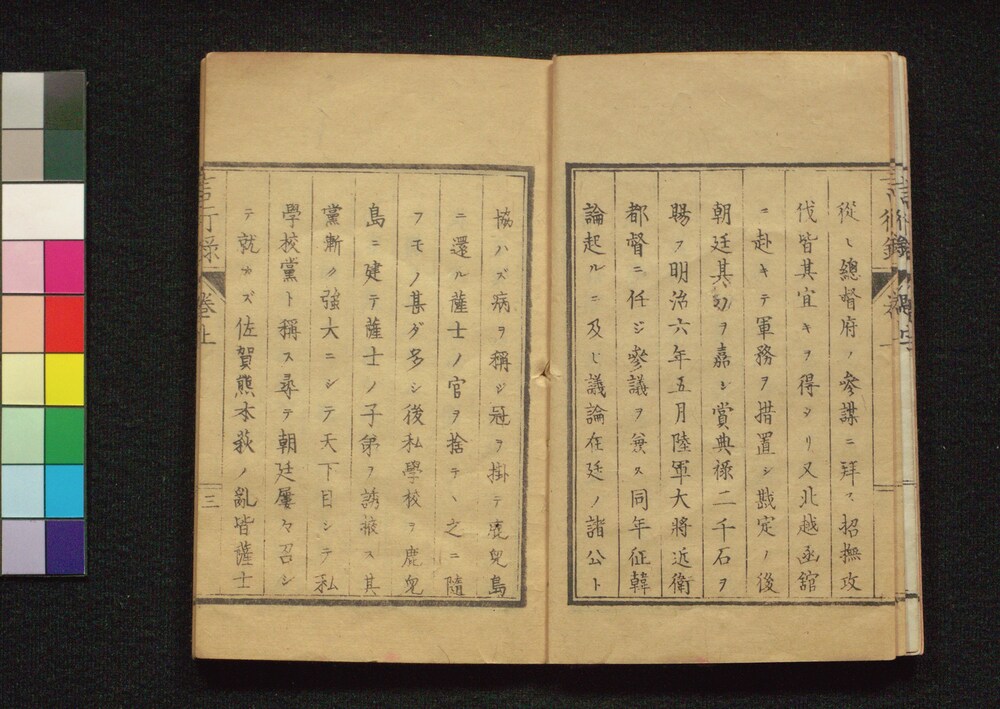 從ヒ總督府ノ參謀ニ拜マ招撫攻
伐皆其宜キヲ得タリ又北越函館
ニ赴キテ軍務ヲ措置シ戡定ノ後
朝廷其功ヲ嘉シ賞典祿二千石ヲ
賜フ明治六年五月陸軍大將近衛
都督ニ任ジ參議ヲ兼ス同年征韓
論起ルニ及ビ議論在廷ノ諸公ト
協ハズ病ヲ稱シ冠ヲ掛テ鹿兒島
ニ還ル薩士ノ官ヲ捨テヽ之ニ隨
フモノ甚ダ多シ後私學校ヲ鹿兒
島ニ建テ薩士ノ子弟ヲ誘掖ス其
黨漸ク強大ニシテ天下目シテ私
學校黨ト稱ス尋テ朝廷屢々召シ
テ就カズ佐賀熊本萩ノ亂皆薩士
言行録
卷上
三